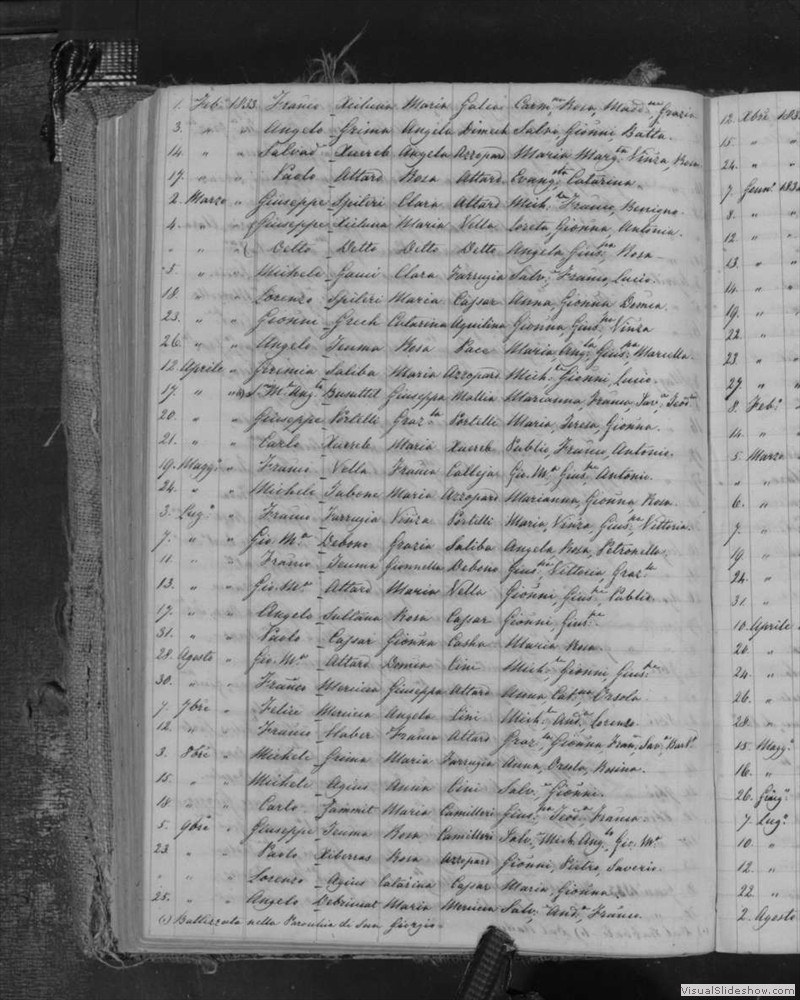 1. Feb.o 1833. Franco Xicluna Maria Galea Carm.na Rosa, Madd.na Grazia
3. " " Angelo Grima Angela Dimech Salvo, Gionni, Batta.
14. " " Salvad.e Xuereb Angela Azzopard Maria Marg.ta Vinza, Rosa.
17. " " Paolo Attard Rosa Attard Evang.sta Catarina.
2. Marzo " Giuseppe Spiteri Clara Attard Mich.le Franco, Benigno.
4. " " Giuseppe Xicluna Maria Vella Loreta, Gionna, Antonia.
" " " Detto Detto Detto Detto Angela, Gius.pa Rosa
5. " " Michele Gauci Clara Farrugia Salv.e Franco, Lucio.
18. " " Lorenzo Spiteri Maria Capsar Anna, Gionna Domca.
23. " " Gionni Grech Catarina Aquilina Gionna, Gius.pa Vinza
26. " " Angelo Teuma Rosa Pace Maria Ang.la Gius.pa Marcella.
12. Aprile " Geremia Saliba Maria Azzopard Mich.le Gionni, Lucio.
17. " " M.el Ang.lo Busuttil Giuseppa Mallia Marianna, Franca, Sav.a Teod.a
20. " " Giuseppe Portelli Graz.la Portelli Maria, Teresa, Gionna.
21. " " Carlo Xuereb Maria Xuereb Publio, Franco, Antonio.
19. Magg.o " Franco Vella Franca Calleja Gio. M.a Gius.pe Antonio.
24. " " Michele Tabone Maria Azzopard Marianna, Gionna, Rosa.
3. Lug.o " Franco Farrugia Vinza Portelli Maria, Vinza, Gius.pa Vittoria.
7. " " Gio. M.a Debono Grazia Saliba Angela, Rosa, Petronella.
11. " " Franco Teuma Gionnella Debono Gius.pa Vittoria, Graz.la
13. " " Gio. M.a Attard Maria Vella Gionni, Gius.pe Publio.
17. " " Angelo Sultana Rosa Capsar Gionni, Gius.pe
31. " " Paolo Capsar Gionna Casha Maria Rosa.
28. Agosto " Gio. M.a Attard Domca Cini Mich.le Gionni, Gius.pe
30. " " Franco Mercieca Giuseppa Attard Anna, Cat.na Orsola.
7. 7bre " Felice Mercieca Angela Cini Mich.le And.a Lorenzo.
12. " " Franco Haber Franca Attard Graz.la Gionna Fran.a Sav.a Bart.a
3. 8bre " Michele Grima Maria Farrugia Anna, Orsola, Rosina.
15. " " Michele Agius Anna Cini Salv.e Gionni.
18 " " Carlo Zammit Maria Camilleri Gius.pa Teod.a Franca
5. 9bre " Giuseppe Teuma Rosa Camilleri Salv.e Mich. Ang.lo Gio. M.a
23. " " Paolo Xiberras Rosa Azzopard Gionni, Pietro, Saverio.
" " " Lorenzo Agius Catarina Capsar Maria, Gionna.
25. " " Angelo Debrincat Maria Mercieca Salv.e And.a Franco.
Battezzata nella Parochia di San Giorgio.
12. Xbre 183
15. " "
24. " "
7. Genn.o 183
8. " "
12. " "
13. " "
14. " "
19. " "
22. " "
23. " "
27. " "
8. Feb.o "
14. " "
5. Marzo
" "
6. "
7. "
19. "
24. "
31. "
10. Aprile
20. "
24. "
26. "
28. "
15. Magg.o
16. "
26. Giug.o
7. Lug.o
10. "
12. "
22. "
2. Agosto
VisualSlideshow.com